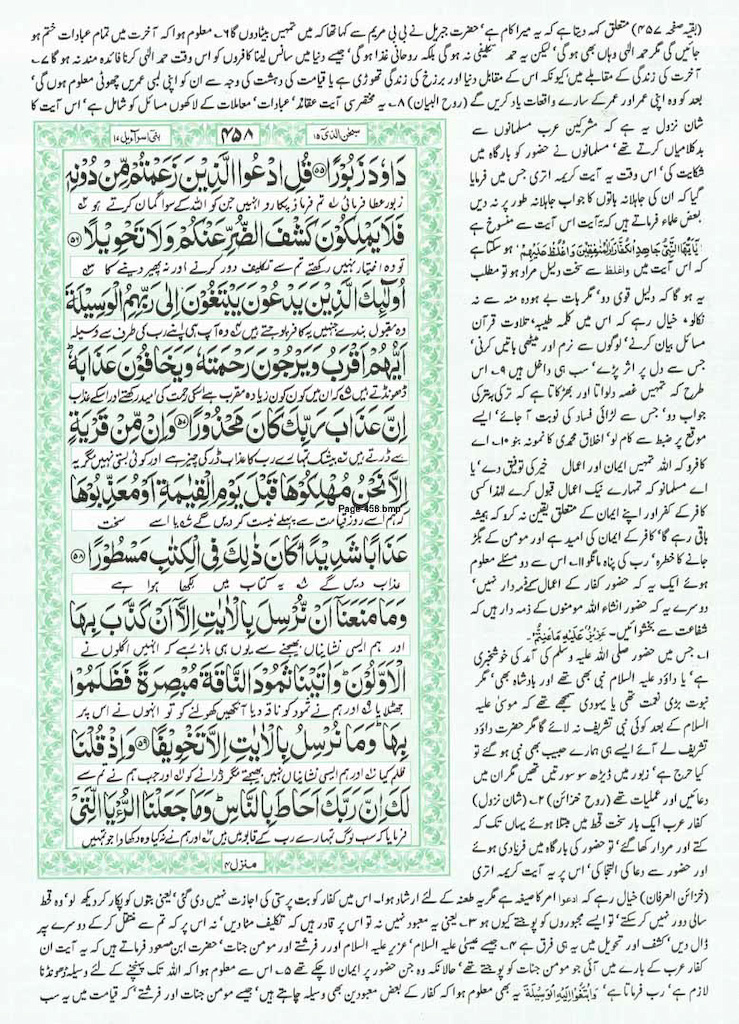 (بقیہ صفحہ ۴۵۷) متعلق کہہ دیتا ہے کہ یہ میرا کام ہے، حضرت جبریل نے بی بی مریم سے کہا تھا کہ میں تمہیں بیٹا دوں گا ۶۔ معلوم ہوا کہ آخرت میں تمام عبادات ختم ہو
جائیں گی مگر حمد الٰہی وہاں بھی ہو گی، لیکن یہ حمد تکلیفی نہ ہو گی بلکہ روحانی غذا ہو گی، جیسے دنیا میں سانس لینا کافروں کو اس وقت حمد الٰہی کرنا فائدہ مند نہ ہو گا ۷۔
آخرت کی زندگی کے مقابلے میں، کیونکہ اس کے مقابل دنیا اور برزخ کی زندگی تھوڑی ہے یا قیامت کی دہشت کی وجہ سے ان کو اپنی لمبی عمریں چھوٹی معلوم ہوں گی،
بعد کو وہ اپنی عمر اور عمر کے سارے واقعات یاد کریں گے (روح البیان) ۸۔ یہ مختصر سی آیت عقائد، عبادات، معاملات کے لاکھوں مسائل کو شامل ہے، اس آیت کا
شان نزول یہ ہے کہ مشرکین عرب مسلمانوں سے
بدکلامیاں کرتے تھے، مسلمانوں نے حضور کو بارگاہ میں
شکایت کی، اس وقت یہ آیت کریمہ اتری جس میں فرمایا
گیا کہ ان کی جاہلانہ باتوں کا جواب جاہلانہ طور پر نہ دیں
بعض علماء فرماتے ہیں کہ یہ آیت اس آیت سے منسوخ ہے
یٰاَیُّهَا النَّبِیُّ جَاهِدِ الْکُفَّارَ وَالْمُنٰفِقِیْنَ وَاغْلُظْ عَلَیْهِمْ، ہو سکتا ہے
کہ اس آیت میں واغلظ سے سخت دلیل مراد ہو تو مطلب
یہ ہو گا کہ دلیل قوی دو، مگر بات بے ہودہ منہ سے نہ
نکالو، خیال رہے کہ اس میں کلمہ طیبہ، تلاوت قرآن
مسائل بیان کرنے، لوگوں سے نرم اور میٹھی باتیں کرنی،
جس سے دل پر اثر پڑے، سب ہی داخل ہیں ۹۔ اس
طرح کہ تمہیں غصہ دلواتا اور بھڑکاتا ہے کہ ترکی بترکی
جواب دو، جس سے لڑائی فساد کی نوبت آ جائے، ایسے
موقع پر ضبط سے کام لو، اخلاق محمدی کا نمونہ بنو ۱۰۔ اے
کافرو کہ اللہ تمہیں ایمان اور اعمال خیر کی توفیق دے، یا
اے مسلمانو کہ تمہارے نیک اعمال قبول کرے لہٰذا کسی
کافر کے کفر اور اپنے ایمان کے متعلق یقین نہ کرو کہ ہمیشہ
باقی رہے گا، کافر کے ایمان کی امید ہے اور مومن کے بگڑ
جانے کا خطرہ، رب کی پناہ مانگو ۱۱۔ اس سے دو مسئلے معلوم
ہوئے ایک یہ کہ حضور کفار کے اعمال کے ذمہ دار نہیں،
دوسرے یہ کہ حضور انشاء اللہ مومنوں کے ذمہ دار ہیں کہ
شفاعت سے بخشوائیں۔ عَزِیْزٌ عَلَیْهِ مَا عَنِتُّمْ۔
۱۔ جس میں حضور صلی اللہ علیہ وسلم کی آمد کی خوشخبری
ہے، یا داؤد علیہ السلام نبی بھی تھے اور بادشاہ بھی، مگر
نبوت بڑی نعمت تھی یا یہودی سمجھے تھے کہ موسیٰ علیہ
السلام کے بعد کوئی نبی تشریف نہ لائے گا مگر حضرت داؤد
تشریف لے آئے ایسے ہی ہمارے حبیب بھی نبی ہو گئے تو
کیا حرج ہے، زبور میں ڈیڑھ سو سورتیں تھیں مگر ان میں
دعائیں اور عملیات تھے (روح خزائن) ۲۔ (شان نزول)
کفار عرب ایک بار سخت قحط میں مبتلا ہوئے یہاں تک کہ
کتے اور مردار کھا گئے، تو حضور کی بارگاہ میں فریادی ہوئے
اور حضور سے دعا کی التجا کی، اس پر یہ آیت کریمہ اتری
سبحٰن الذی ۱۵
۴۵۸
بنی اسرآءیل ۱۷
دَاوٗدَ زَبُوْرًا ﴿۵۵﴾ قُلِ ادْعُوا الَّذِیْنَ زَعَمْتُمْ مِّنْ دُوْنِهٖ
زبور عطا فرمائی تم فرماؤ پکارو انہیں جن کو اللہ کے سوا گمان کرتے ہو
فَلَا یَمْلِكُوْنَ كَشْفَ الضُّرِّ عَنْكُمْ وَلَا تَحْوِیْلًا ﴿۵۶﴾
تو وہ اختیار نہیں رکھتے تم سے تکلیف دور کرنے اور نہ پھیر دینے کا
اُولٰٓئِكَ الَّذِیْنَ یَدْعُوْنَ یَبْتَغُوْنَ اِلٰی رَبِّهِمُ الْوَسِیْلَةَ
وہ مقبول بندے جنہیں یہ کافر پوجتے ہیں وہ آپ ہی اپنے رب کی طرف سے وسیلہ
اَیُّهُمْ اَقْرَبُ وَیَرْجُوْنَ رَحْمَتَهٗ وَیَخَافُوْنَ عَذَابَهٗ ؕ
ڈھونڈتے ہیں کہ ان میں کون زیادہ مقرب ہے اسکی رحمت کی امید رکھتے اور اسکے عذاب
اِنَّ عَذَابَ رَبِّكَ كَانَ مَحْذُوْرًا ﴿۵۷﴾ وَاِنْ مِّنْ قَرْیَةٍ
سے ڈرتے ہیں بیشک تمہارے رب کا عذاب ڈر کی چیز ہے اور کوئی بستی نہیں مگر یہ
اِلَّا نَحْنُ مُهْلِكُوْهَا قَبْلَ یَوْمِ الْقِیٰمَةِ اَوْ مُعَذِّبُوْهَا
Page-458.bmp
کہ ہم اسے روز قیامت سے پہلے نیست کر دیں گے یا اسے سخت
عَذَابًا شَدِیْدًا ؕ كَانَ ذٰلِكَ فِی الْكِتٰبِ مَسْطُوْرًا ﴿۵۸﴾
عذاب دیں گے یہ کتاب میں لکھا ہوا ہے
وَمَا مَنَعَنَاۤ اَنْ نُّرْسِلَ بِالْاٰیٰتِ اِلَّاۤ اَنْ كَذَّبَ بِهَا
اور ہم ایسی نشانیاں بھیجنے سے یوں ہی باز رہے کہ انہیں اگلوں نے
الْاَوَّلُوْنَ ؕ وَاٰتَیْنَا ثَمُوْدَ النَّاقَةَ مُبْصِرَةً فَظَلَمُوْا
جھٹلایا اور ہم نے ثمود کو ناقہ دیا آنکھیں کھولنے کو تو انہوں نے اس پر
بِهَا ؕ وَمَا نُرْسِلُ بِالْاٰیٰتِ اِلَّا تَخْوِیْفًا ﴿۵۹﴾ وَاِذْ قُلْنَا
ظلم کیا اور ہم ایسی نشانیاں نہیں بھیجتے مگر ڈرانے کو اور جب ہم نے تم سے
لَكَ اِنَّ رَبَّكَ اَحَاطَ بِالنَّاسِ ؕ وَمَا جَعَلْنَا الرُّءْیَا الَّتِیْۤ
فرمایا کہ سب لوگ تمہارے رب کے قابو میں ہیں اور ہم نے نہ کیا وہ دکھاوا جو تمہیں
منزل ۴
(خزائن العرفان) خیال رہے کہ ادعوا امر کا صیغہ ہے مگر یہ طعنہ کے لئے ارشاد ہوا۔ اس میں کفار کو بت پرستی کی اجازت نہیں دی گئی، یعنی بتوں کو پکار کر دیکھ لو، وہ قحط
سالی دور نہیں کر سکتے، تو ایسے مجبوروں کو پوجتے کیوں ہو ۳۔ یعنی یہ معبود نہیں نہ تو اس پر قادر ہیں کہ تکلیف مٹا دیں، نہ اس پر کہ تم سے منتقل کر کے دوسرے پر
ڈال دیں، کشف اور تحویل میں یہ ہی فرق ہے ۴۔ جیسے عیسیٰ علیہ السلام، عزیر علیہ السلام اور فرشتے اور مومن جنات، حضرت ابن مسعود فرماتے ہیں کہ یہ آیت ان
کفار عرب کے بارے میں آئی جو مومن جنات کو پوجتے تھے، حالانکہ وہ جن حضور پر ایمان لا چکے تھے ۵۔ اس سے معلوم ہوا کہ اللہ تک پہنچنے کے لئے وسیلہ ڈھونڈنا
لازم ہے، رب فرماتا ہے، وَابْتَغُوْا اِلَیْهِ الْوَسِیْلَةَ یہ بھی معلوم ہوا کہ کفار کے بعض معبودین بھی وسیلہ چاہتے ہیں، جیسے مومن جنات اور فرشتے، کہ قیامت میں یہ سب